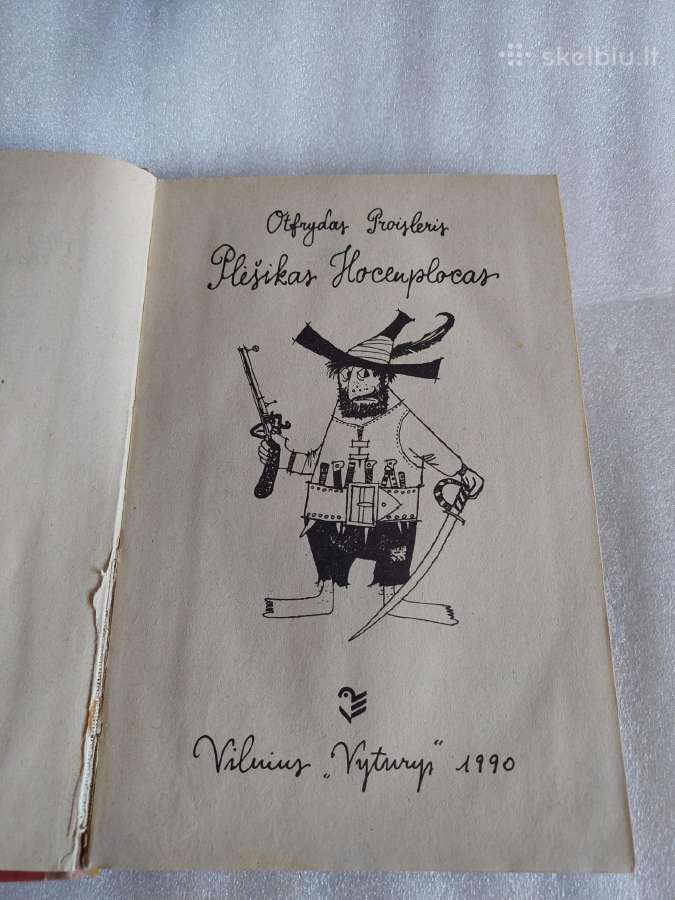 skelbiu.lt
Otfrydas Proisleris
Plėšikas Hocenplocas
Vilnius „Vyturys“ 1990